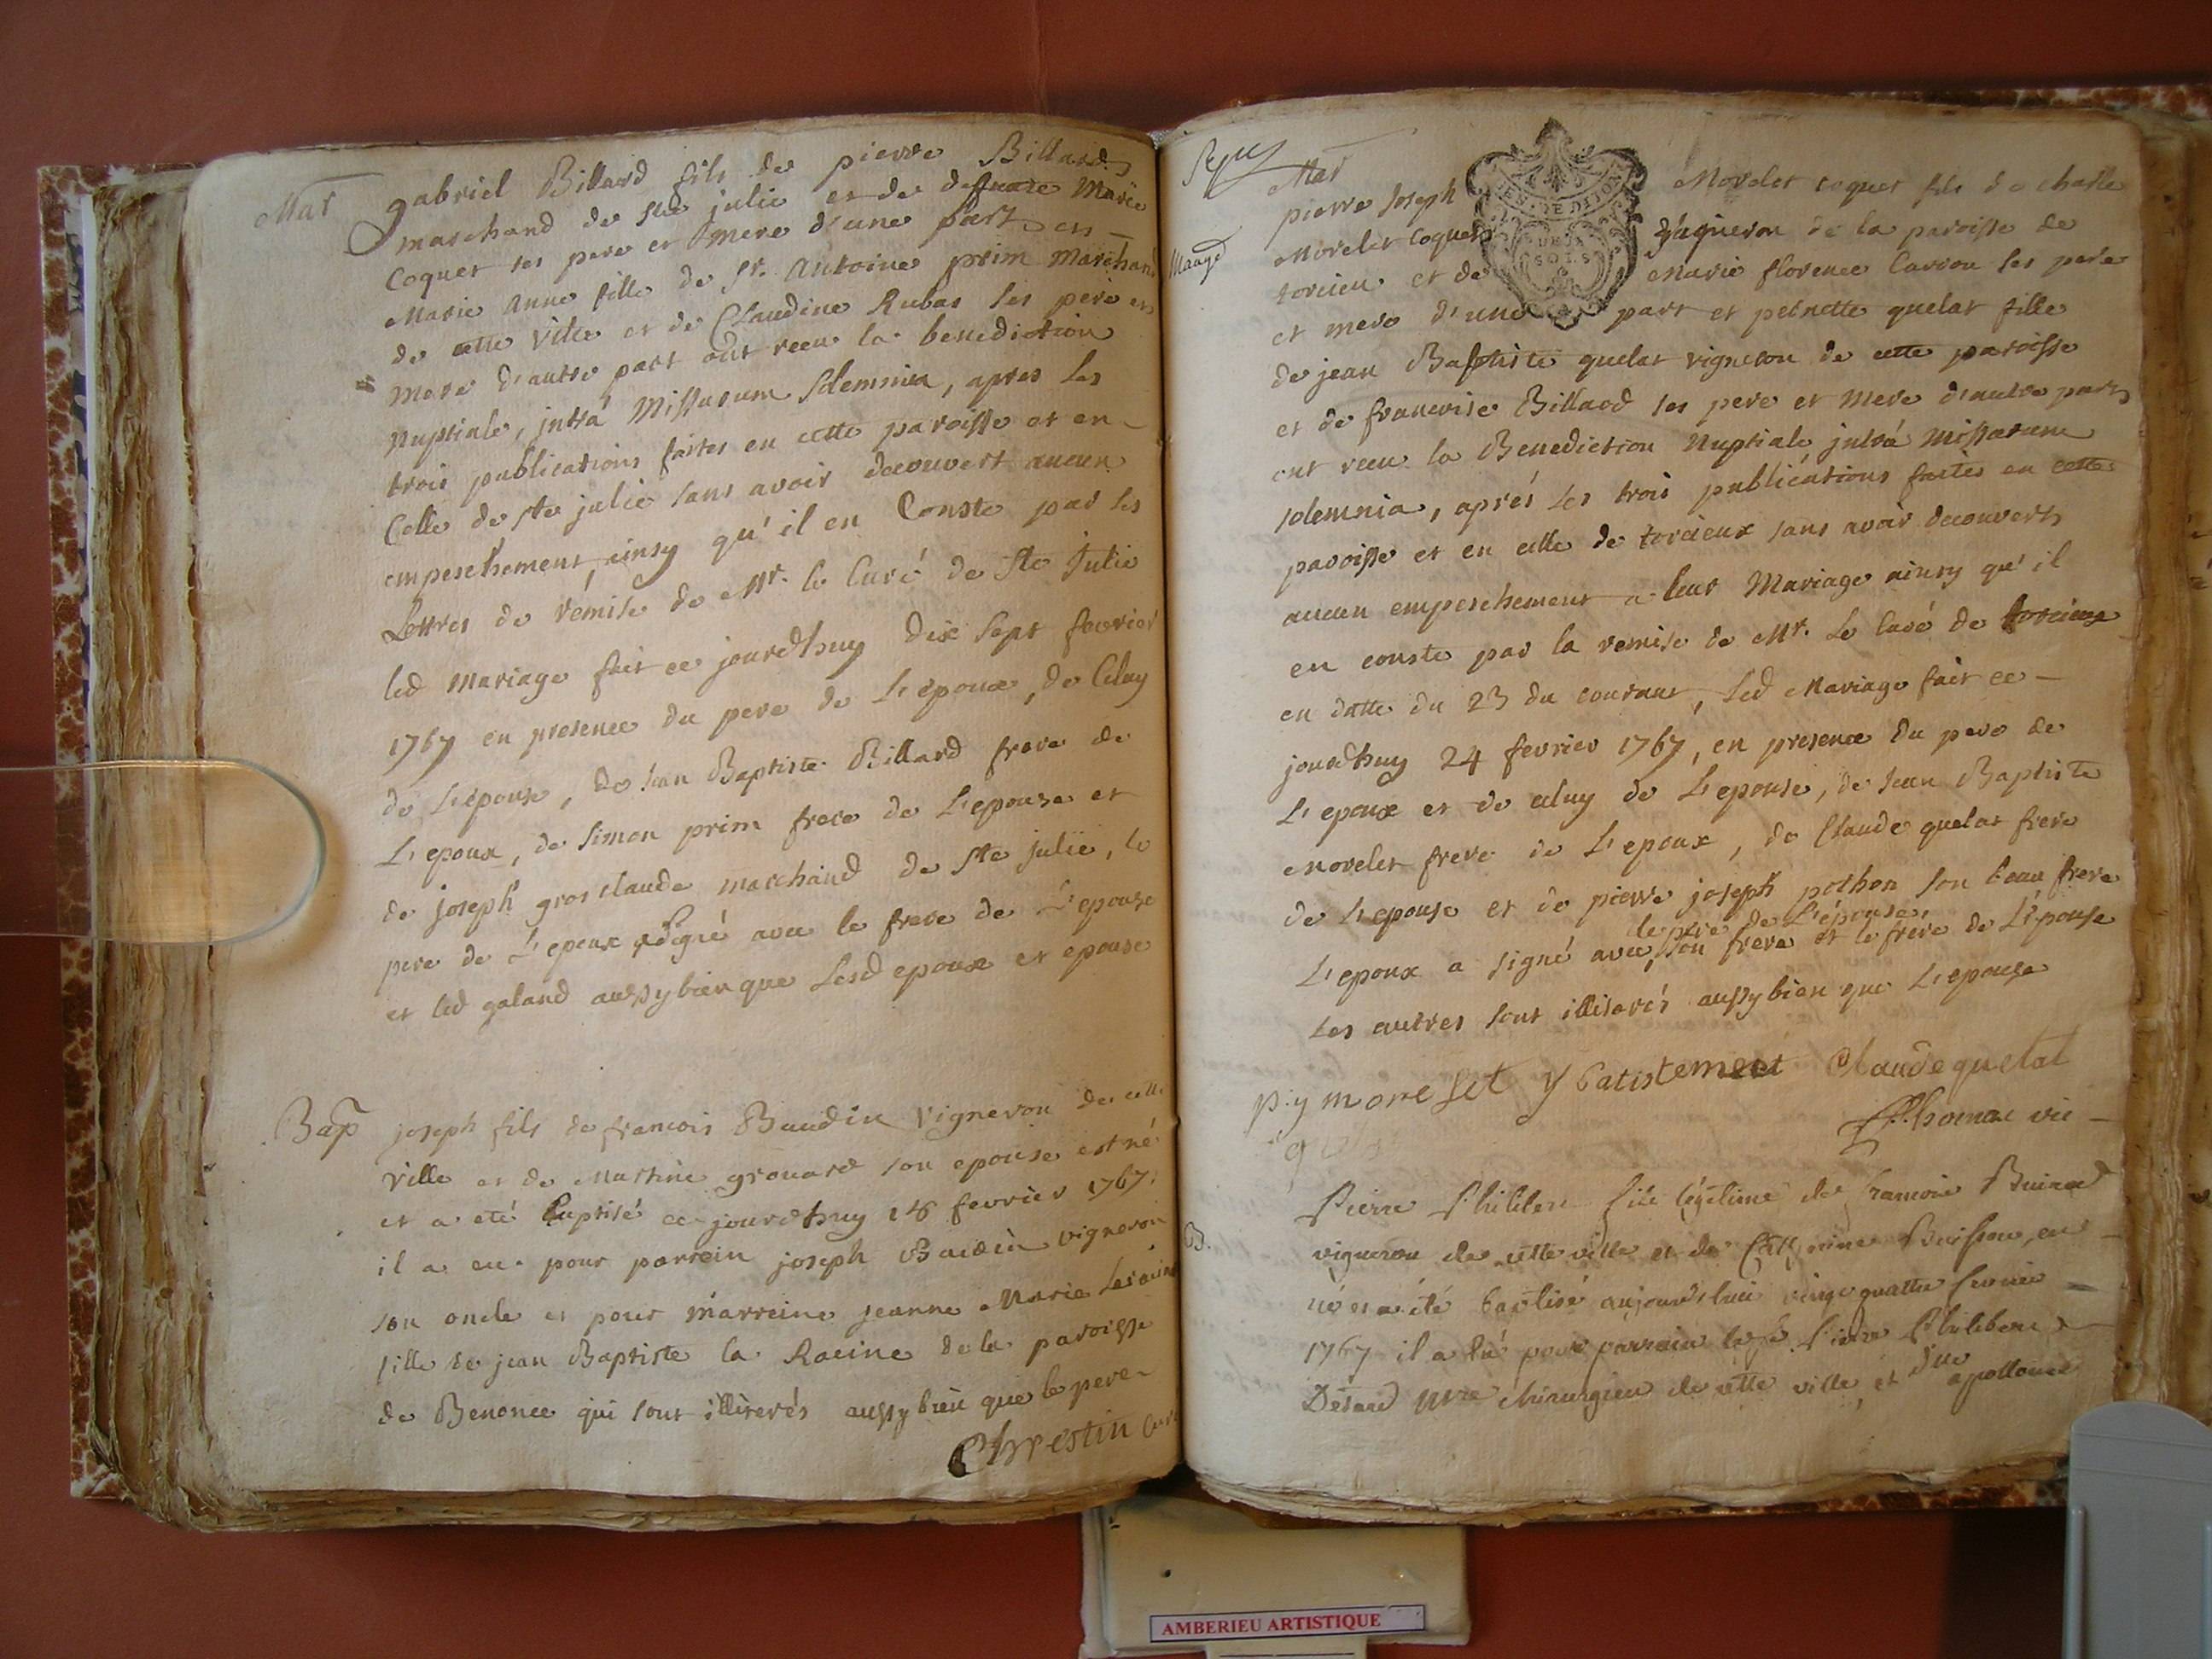 Mar gabriel Billard fils de pierre Billard
marchand de Ste julie et de deffunte Marie
Coquet ses pere et mere d'une part et
Marie Anne fille de Sr. Antoine prim Marchand
de cette Ville et de Claudine Rubas ses pere et
mere d'autre part ont reçu la benediction
Nuptiale, intrà Missarum Solemnia, apres les
trois publications faites en cette paroisse et en
Celle de ste julie sans avoir decouvert aucun
empeschement, ainsy qu'il en Conste par les
Lettres de remise de Mr. le Curé de Ste Julie
led Mariage fait ce jourdhuy dix sept fevrier
1767 en presence du pere de L'epoux, de Celuy
de L'épouse, de Jean Baptiste Billard frere de
L'epoux, de Simon prim frere de L'epouse et
de joseph gros claude marchand de Ste julie, le
pere de L'epoux a signé avec le frere de L'epouse
et led galand aussy bien que Lesd epoux et epouse
Bap joseph fils de francois Baudin Vigneron de cette
Ville et de Martine grouard son epouse est né
et a eté baptisé ce jourdhuy 18 fevrier 1767,
il a eu pour parrein joseph Baudin vigneron
son oncle et pour marreine jeanne Marie
fille de jean Baptiste la Racine de la paroisse
de Benonce qui sont illiterés aussy bien que le pere
Chrestin curé
Mar
Mariage
GEN. DE DIJON
DEUX
SOLS
pierre Joseph Morelet coquet fils de charle
Morelet Coquet Vigneron de la paroisse de
torcieu et de Marie florence Carron ses pere
et mere d'une part et pernette quelat fille
de jean Baptiste quelat vigneron de cette paroisse
et de francoise Billard ses pere et mere d'autre part
ont recu la Benediction Nuptiale intrà missarum
solemnia, aprés les trois publications faites en cette
paroisse et en celle de torcieux sans avoir decouvert
aucun empeschement a leur Mariage ainsy qu'il
en conste par la remise de Mr. Le Curé de torcieux
en datte du 23 du courant, Led Mariage fait ce
jourdhuy 24 fevrier 1767, en presence du pere de
L'epoux et de celuy de L'epouse, de Jean Baptiste
Morelet frere de L'epoux, de Claude quelat frere
de L'epouse et de pierre joseph pothon son beau frere
le pere de L'épouse,
L'epoux a signé avec son frere et le frere de L'epouse
Les autres sont illiterés aussy bien que L'epouse
p.y morelet Claude quelat
Thomas vic
B. Pierre Philibert fils légitime de francois
vigneron de cette ville et de Catherine Buisson, est
né et a été baptisé aujourd'huy vingt quattre fevrier
1767 il a eû pour parrain le Sr. Pierre Philibert
Désard Mre chirurgien de cette ville, et dlle apollonie
AMBERIEU ARTISTIQUE